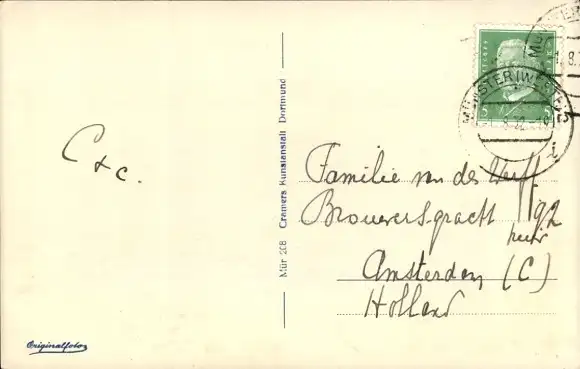 C + c.
Mür 208 Cramers Kunstanstalt Dortmund
Originalfoto
5
MÜNSTER (WESTF) 2
1.8.32
Familie van der Werff
Brouwersgracht 92
huis
Amsterdam (C)
Holland